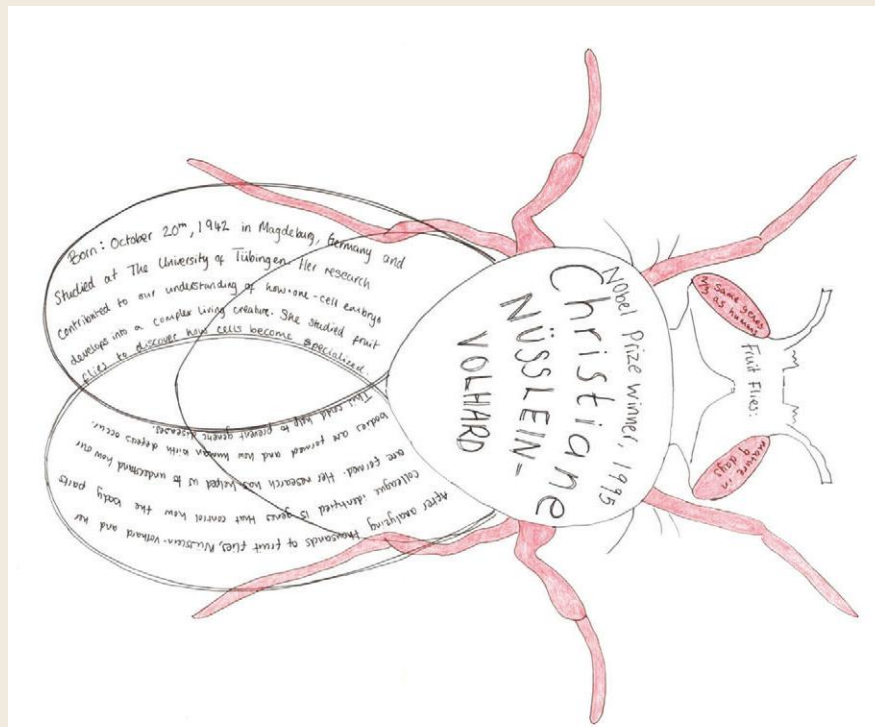 Nobel Prize winner, 1995
Christiane
NÜSSLEIN-
VOLHARD
Fruit Flies:
2/3 same genes
as humans
mature in
9 days
Born: October 20th, 1942 in Magdeburg, Germany and
studied at The University of Tübingen. Her research
contributed to our understanding of how one-cell embryo
develops into a complex living creature. She studied fruit
flies to discover how cells become specialized.
After analyzing thousands of fruit flies, Nüsslein-Volhard and her
colleague identified 15 genes that control how the body parts
are formed. Her research has helped us to understand how our
bodies are formed and how human birth defects occur.
This could help to prevent genetic diseases.